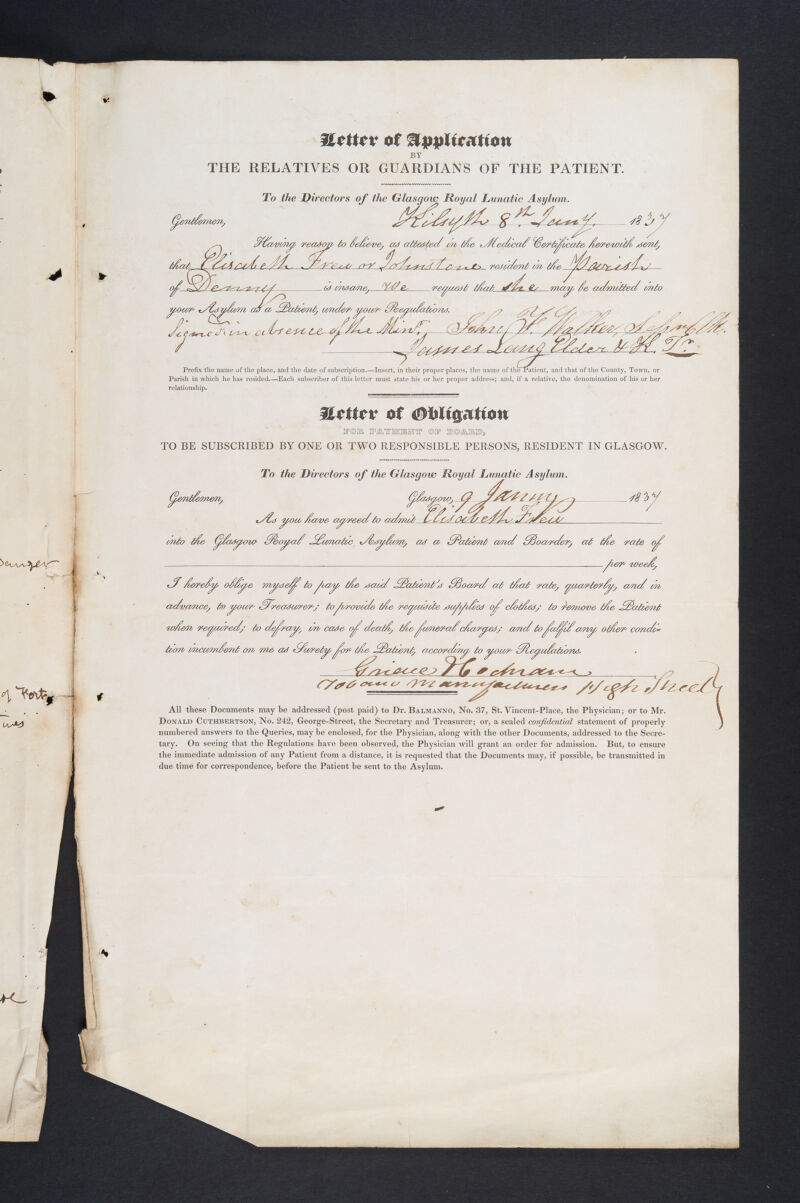 Letter of Application
BY
THE RELATIVES OR GUARDIANS OF THE PATIENT.
To the Directors of the Glasgow Royal Lunatic Asylum.
Gentlemen, Kilsyth 8th. Jany. 1837
Having reason to believe, as attested in the Medical Certificate herewith sent,
that Elisabeth Frew or Johnstone resident in the Parish
of Denny is insane, we request that she may be admitted into
your Asylum as a Patient, under your Regulations.
Signed in absence of the Minr. John F. Walker,
James Lang Elder & K. Tr.
Prefix the name of the place, and the date of subscription.—Insert, in their proper places, the name of the Patient, and that of the County, Town, or
Parish in which he has resided.—Each subscriber of this letter must state his or her proper address; and, if a relative, the denomination of his or her
relationship.
Letter of Obligation
FOR PAYMENT OF BOARD,
TO BE SUBSCRIBED BY ONE OR TWO RESPONSIBLE PERSONS, RESIDENT IN GLASGOW.
To the Directors of the Glasgow Royal Lunatic Asylum.
Gentlemen, Glasgow, 9 Janury 1837
As you have agreed to admit Elisabeth Frew
into the Glasgow Royal Lunatic Asylum, as a Patient and Boarder, at the rate of
per week,
I hereby oblige myself to pay the said Patient's Board at that rate, quarterly, and in
advance, to your Treasurer; to provide the requisite supplies of clothes; to remove the Patient
when required; to defray, in case of death, the funeral charges; and to fulfil any other condi-
tion incumbent on me as Surety for the Patient, according to your Regulations.
Manufacturers High Street
All these Documents may be addressed (post paid) to Dr. BALMANNO, No. 37, St. Vincent-Place, the Physician; or to Mr.
DONALD CUTHBERTSON, No. 242, George-Street, the Secretary and Treasurer; or, a sealed confidential statement of properly
numbered answers to the Queries, may be enclosed, for the Physician, along with the other Documents, addressed to the Secre-
tary. On seeing that the Regulations have been observed, the Physician will grant an order for admission. But, to ensure
the immediate admission of any Patient from a distance, it is requested that the Documents may, if possible, be transmitted in
due time for correspondence, before the Patient be sent to the Asylum.